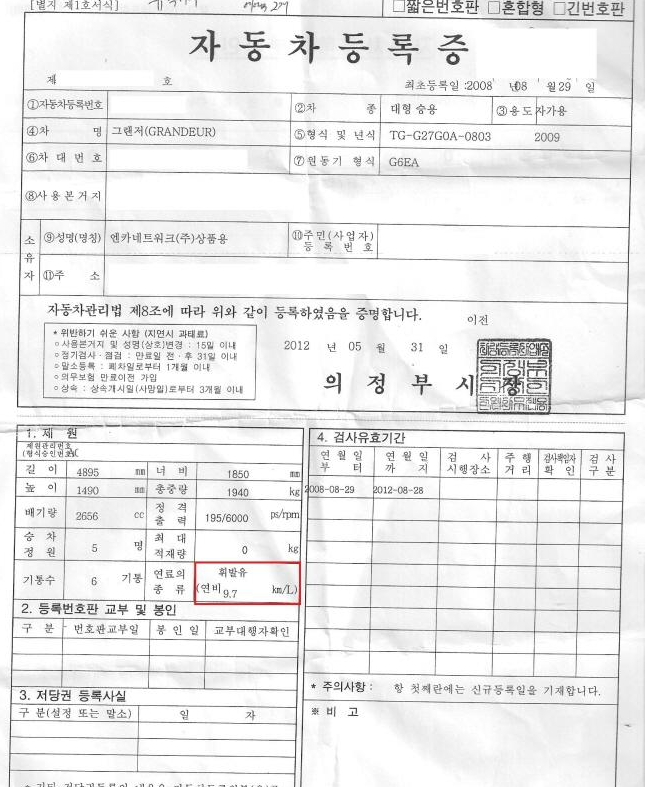 [별지 제1호서식]
□짧은번호판 □혼합형 □긴번호판
자동차등록증
제 호 최초등록일 :2008 년08 월29 일
①자동차등록번호 ②차 종 대형 승용 ③용도 자가용
④차 명 그랜저(GRANDEUR) ⑤형식 및 년식 TG-G27G0A-0803 2009
⑥차 대 번 호 ⑦원동기 형식 G6EA
⑧사용본거지
소유자 ⑨성명(명칭) 엔카네트워크(주)상품용 ⑩주민(사업자)등록번호
⑪주 소
자동차관리법 제8조에 따라 위와 같이 등록하였음을 증명합니다.
이전
* 위반하기 쉬운 사항 (지연시 과태료)
○사용본거지 및 성명(상호)변경 : 15일 이내
○정기검사·점검 : 만료일 전·후 31일 이내
○말소등록 : 폐차일로부터 1개월 이내
○의무보험 만료이전 가입
○상속 : 상속개시일(사망일)로부터 3개월 이내
2012 년 05 월 31 일
의정부시장
1. 제 원
제원관리번호
(형식승인번호)
길 이 4895 mm 너 비 1850 mm
높 이 1490 mm 총중량 1940 kg
배기량 2656 cc 정격출력 195/6000 ps/rpm
승차정원 5 명 최대적재량 0 kg
기통수 6 기통 연료의종류 휘발유
(연비 9.7 km/L)
2. 등록번호판 교부 및 봉인
구 분 번호판교부일 봉인일 교부대행자확인
3. 저당권 등록사실
구 분(설정 또는 말소) 일 자
4. 검사유효기간
연월일부터 연월일까지 검사시행장소 주행거리 검사책임자확인 검사구분
2008-08-29 2012-08-28
* 주의사항 : 항 첫째란에는 신규등록일을 기재합니다.
※ 비 고